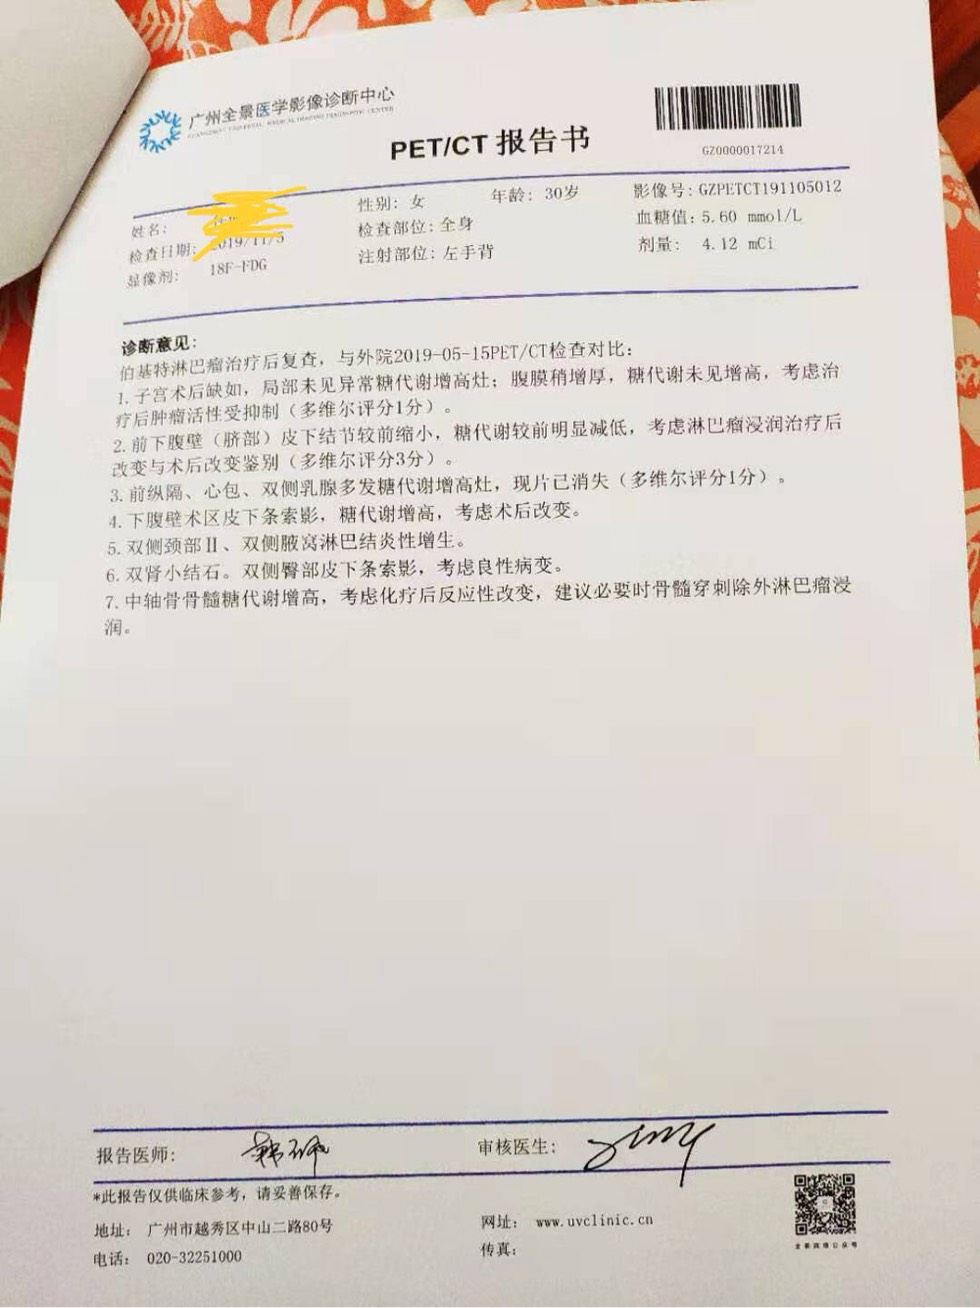 广州全景医学影像诊断中心
GUANGZHOU UNIVERSAL MEDICAL IMAGING DIAGNOSTIC CENTER
PET/CT 报告书
GZ0000017214
姓名: 性别: 女 年龄: 30岁 影像号: GZPETCT191105012
检查日期: 2019/11/5 检查部位: 全身 血糖值: 5.60 mmol/L
显像剂: 18F-FDG 注射部位: 左手背 剂量: 4.12 mCi
诊断意见:
伯基特淋巴瘤治疗后复查，与外院2019-05-15PET/CT检查对比:
1. 子宫术后缺如，局部未见异常糖代谢增高灶；腹膜稍增厚，糖代谢未见增高，考虑治
疗后肿瘤活性受抑制（多维尔评分1分）。
2. 前下腹壁（脐部）皮下结节较前缩小，糖代谢较前明显减低，考虑淋巴瘤浸润治疗后
改变与术后改变鉴别（多维尔评分3分）。
3. 前纵隔、心包、双侧乳腺多发糖代谢增高灶，现片已消失（多维尔评分1分）。
4. 下腹壁术区皮下条索影，糖代谢增高，考虑术后改变。
5. 双侧颈部Ⅱ、双侧腋窝淋巴结炎性增生。
6. 双肾小结石。双侧臀部皮下条索影，考虑良性病变。
7. 中轴骨骨髓糖代谢增高，考虑化疗后反应性改变，建议必要时骨髓穿刺除外淋巴瘤浸
润。
报告医师: 审核医生:
*此报告仅供临床参考，请妥善保存。
地址: 广州市越秀区中山二路80号 网址: www.uvclinic.cn
电话: 020-32251000 传真: